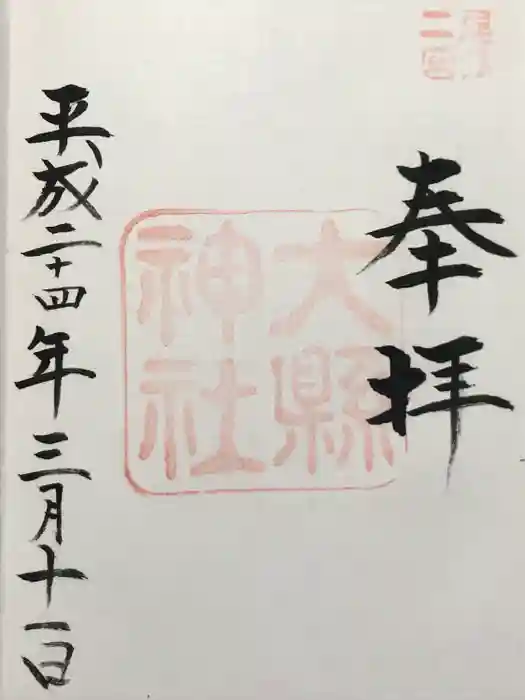 尾張
二宮
奉拝
大縣
神社
平成二十四年三月十一日